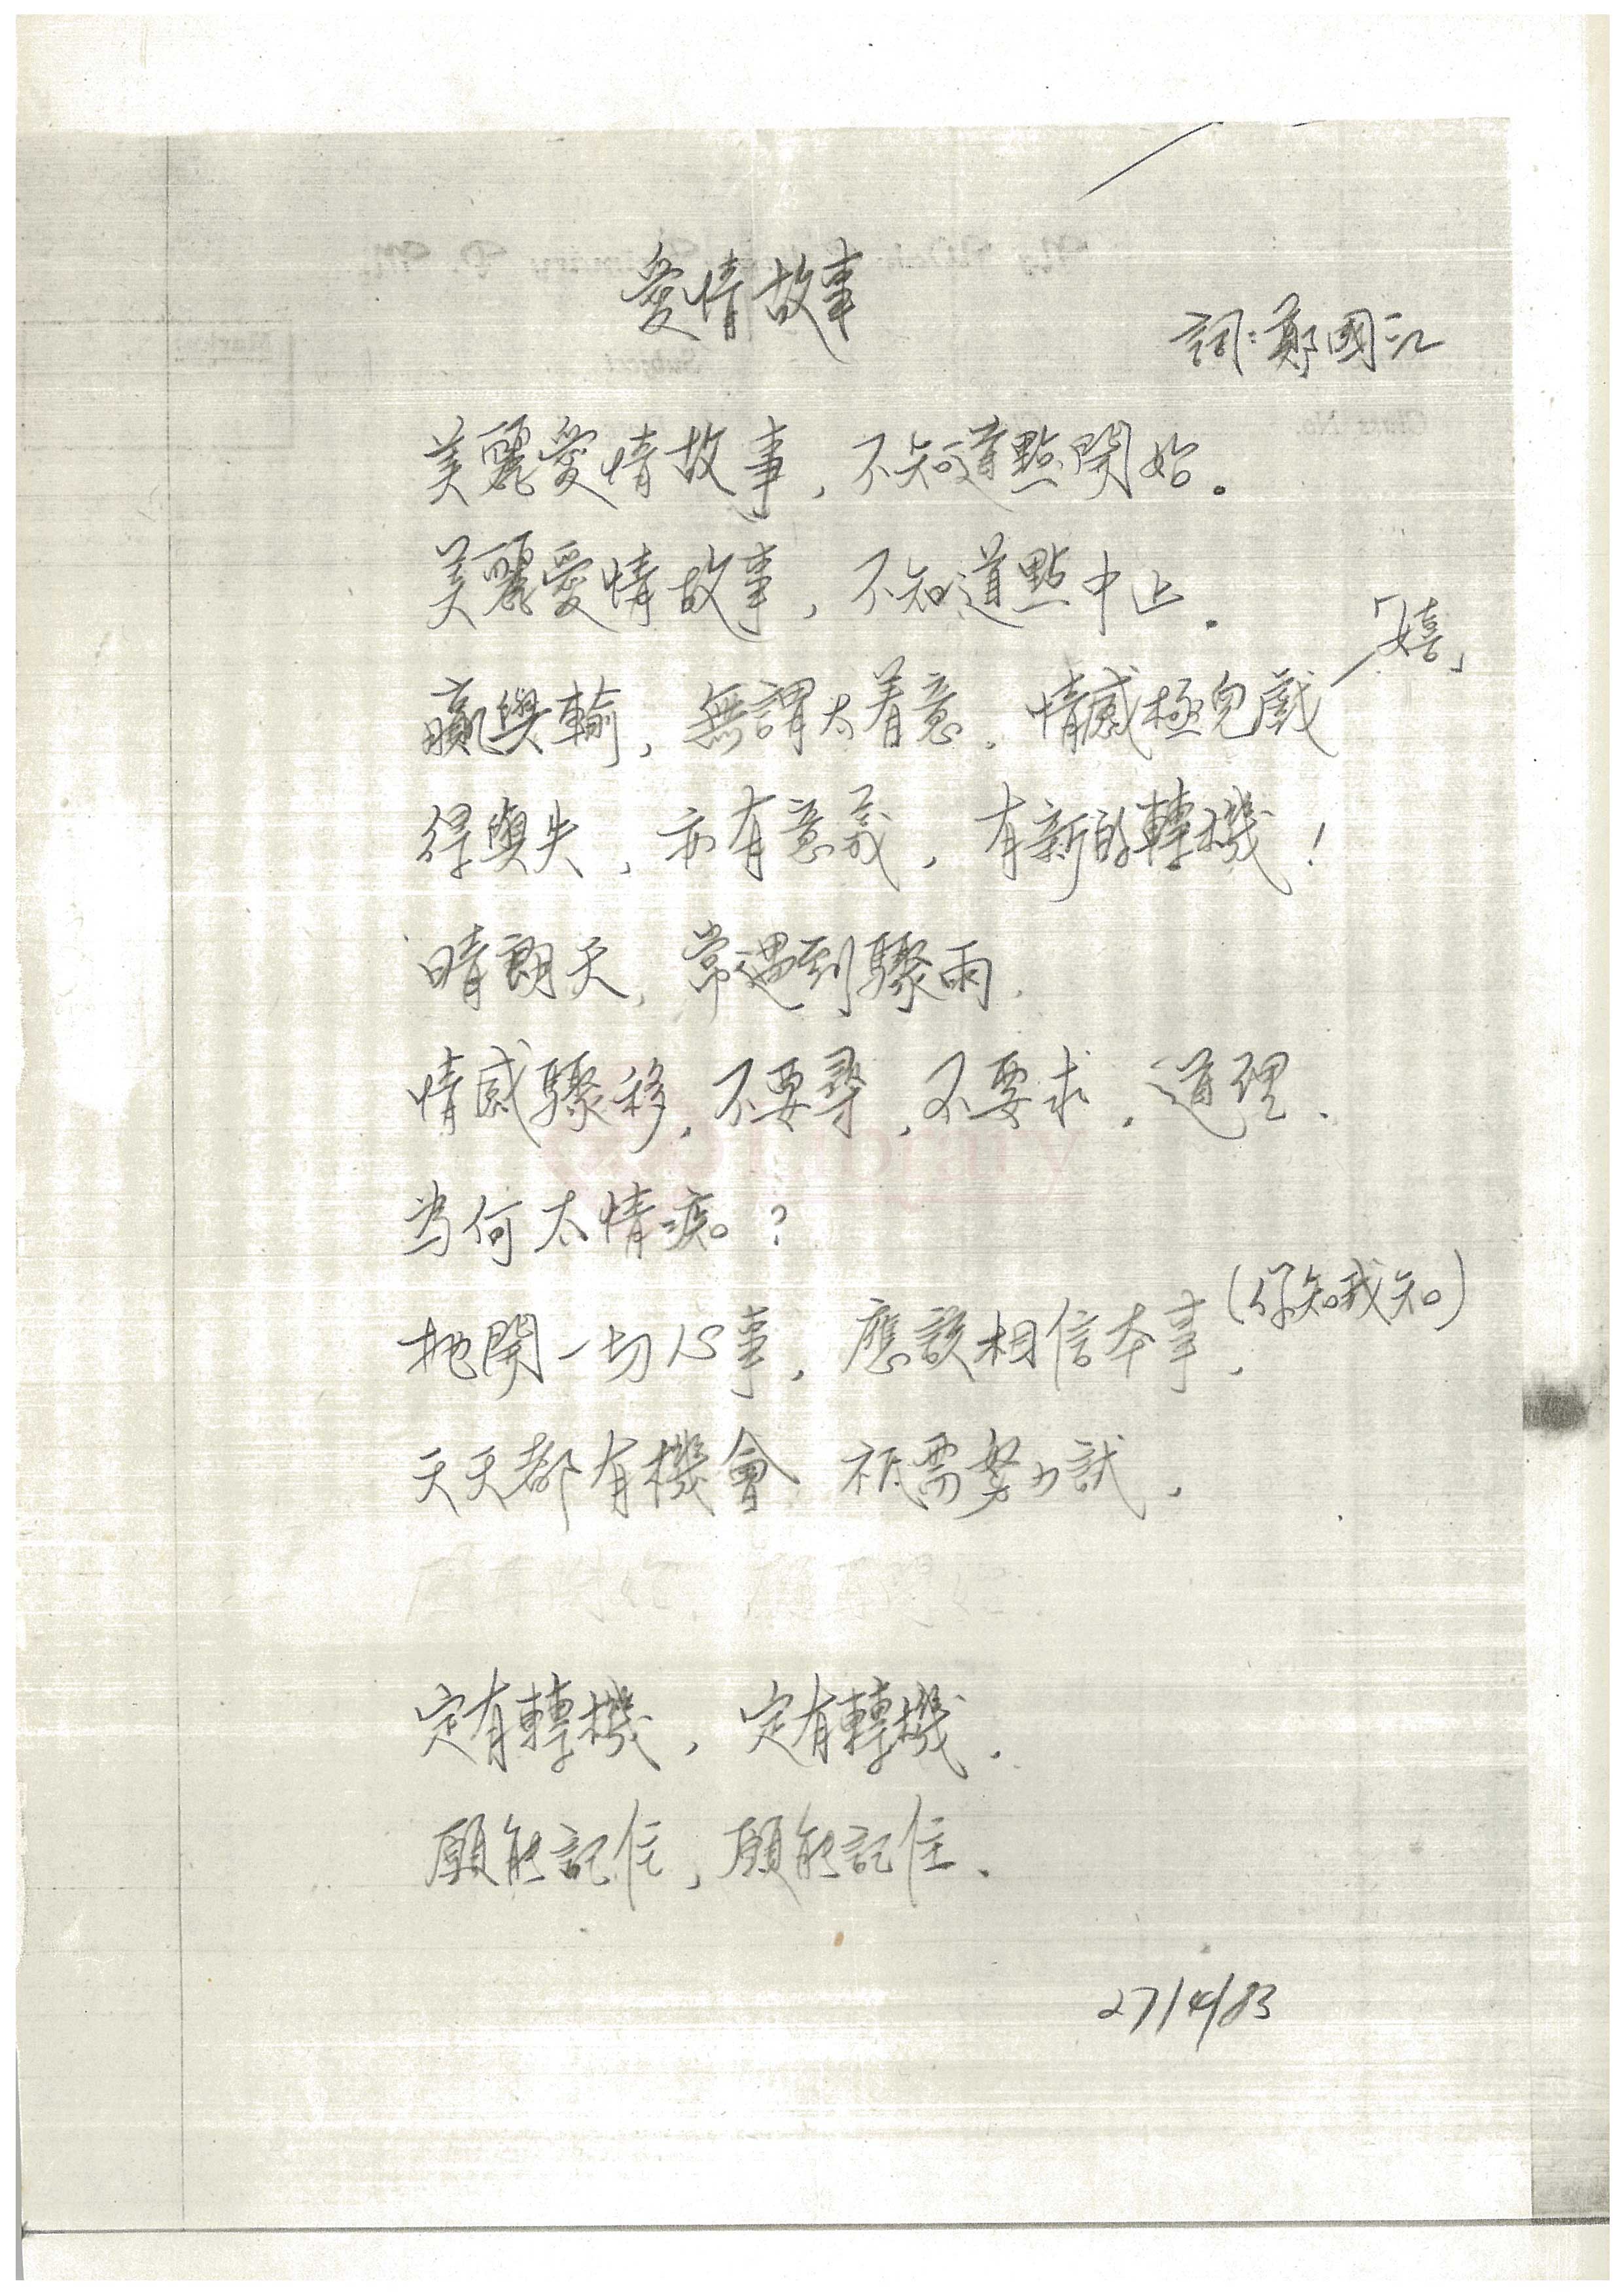 愛情故事
詞：鄭國江
美麗愛情故事，不知道點開始。
美麗愛情故事，不知道點中止。
「嬉」
贏與輸，無謂太着意。情感極兒戲
得與失，亦有意義，有新的轉機！
晴朗天，常遇到驟雨。
情感驟移，不要尋，不要求，道理。
為何太情痴？
(你知我知)
抛開一切心事，應該相信本事，
天天都有機會 祗需努力試。
定有轉機，定有轉機。
願能記住，願能記住。
27/4/83
Library